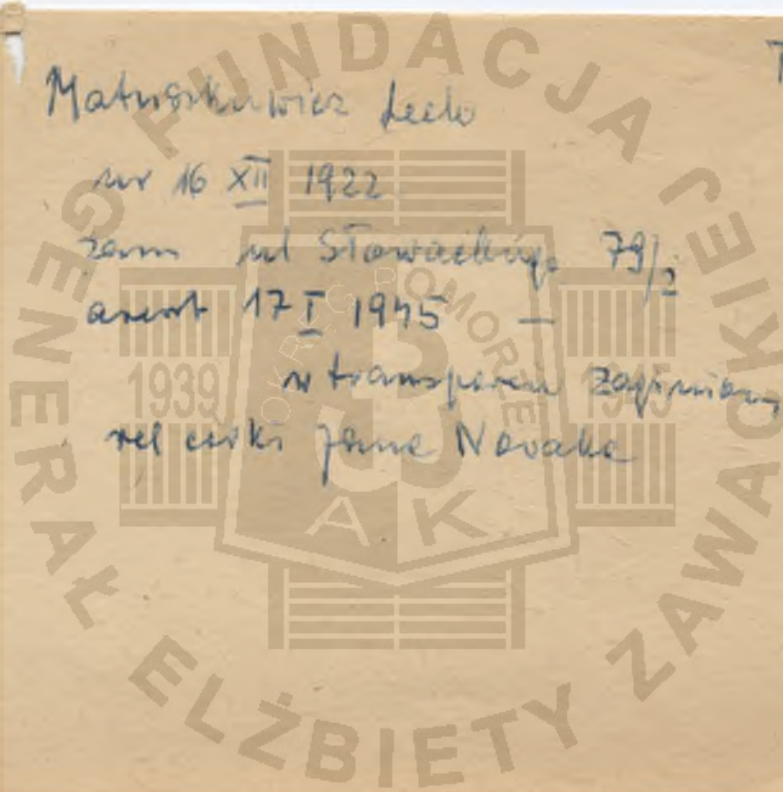 T
Matuszkiewicz Lech
ur 16 XII 1922
zam ul Słowackiego 79/2
areszt 17 I 1945 —
w transporcie zaginiony
rel córki Jana Nowaka
FUNDACJA JEJ
GENERAŁ ELŻBIETY ZAWACKIEJ
OKRĘG POMORZE
1939 1945
AK